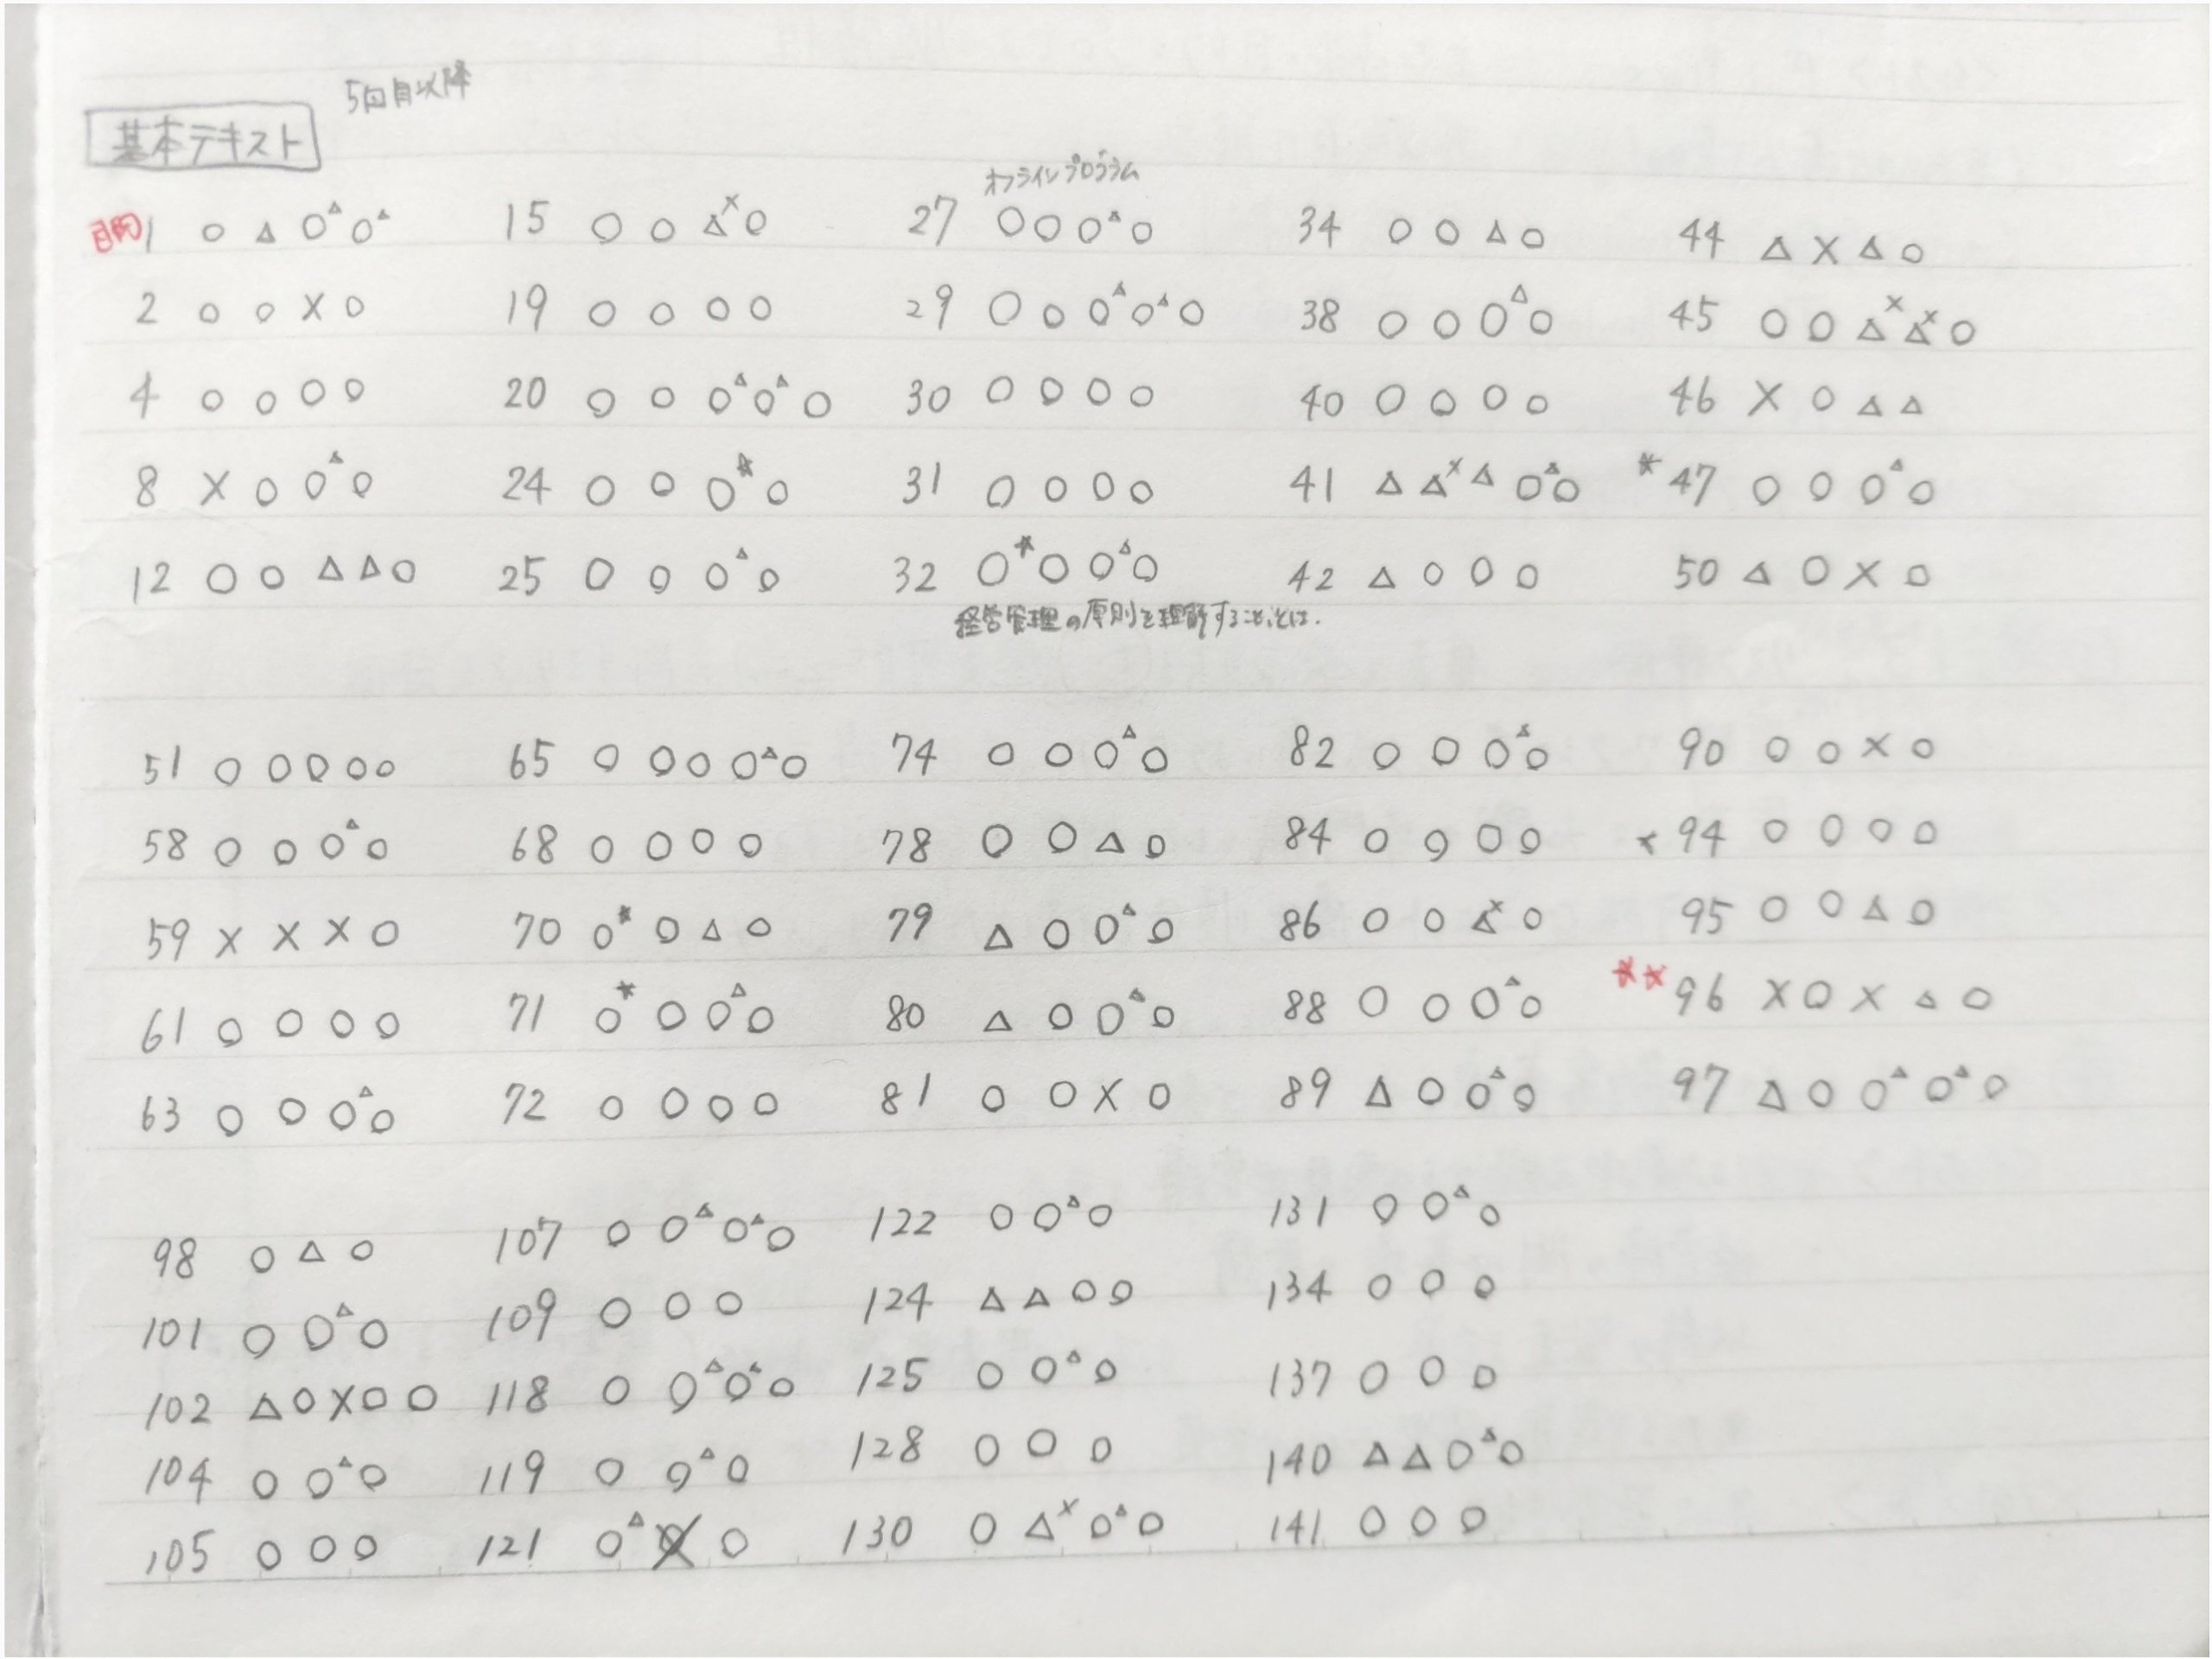 5回目以降
基本テキスト
オフラインプログラム
目的 1 ○ △ ○△ ○△ 15 ○ ○ △× ○ 27 ○ ○ ○△ ○ 34 ○ ○ △ ○ 44 △ × △ ○
2 ○ ○ × ○ 19 ○ ○ ○ ○ 29 ○ ○ ○△ ○△ ○ 38 ○ ○ ○△ ○ 45 ○ ○ △× △× ○
4 ○ ○ ○ ○ 20 ○ ○ ○△ ○△ ○ 30 ○ ○ ○ ○ 40 ○ ○ ○ ○ 46 × ○ △ △
8 × ○ ○△ ○ 24 ○ ○ ○★ ○ 31 ○ ○ ○ ○ 41 △ △× △ ○△ ○ ★47 ○ ○ ○△ ○
12 ○ ○ △ △ ○ 25 ○ ○ ○△ ○ 32 ○★ ○ ○△ ○ 42 △ ○ ○ ○ 50 △ ○ × ○
経営管理の原則を理解すること、とは.
51 ○ ○ ○ ○ ○ 65 ○ ○ ○ ○△ ○ 74 ○ ○ ○△ ○ 82 ○ ○ ○△ ○ 90 ○ ○ × ○
58 ○ ○ ○△ ○ 68 ○ ○ ○ ○ 78 ○ ○ △ ○ 84 ○ ○ ○ ○ ★94 ○ ○ ○ ○
59 × × × ○ 70 ○★ ○ △ ○ 79 △ ○ ○△ ○ 86 ○ ○ △× ○ 95 ○ ○ △ ○
61 ○ ○ ○ ○ 71 ○★ ○ ○△ ○ 80 △ ○ ○△ ○ 88 ○ ○ ○△ ○ ★★96 × ○ × △ ○
63 ○ ○ ○△ ○ 72 ○ ○ ○ ○ 81 ○ ○ × ○ 89 △ ○ ○△ ○ 97 △ ○ ○△ ○△ ○
98 ○ △ ○ 107 ○ ○△ ○△ ○ 122 ○ ○△ ○ 131 ○ ○△ ○
101 ○ ○△ ○ 109 ○ ○ ○ 124 △ △ ○ ○ 134 ○ ○ ○
102 △ ○ × ○ ○ 118 ○ ○△ ○△ ○ 125 ○ ○△ ○ 137 ○ ○ ○
104 ○ ○△ ○ 119 ○ ○△ ○ 128 ○ ○ ○ 140 △ △ ○△ ○
105 ○ ○ ○ 121 ○△ × ○ 130 ○ △× ○△ ○ 141 ○ ○ ○